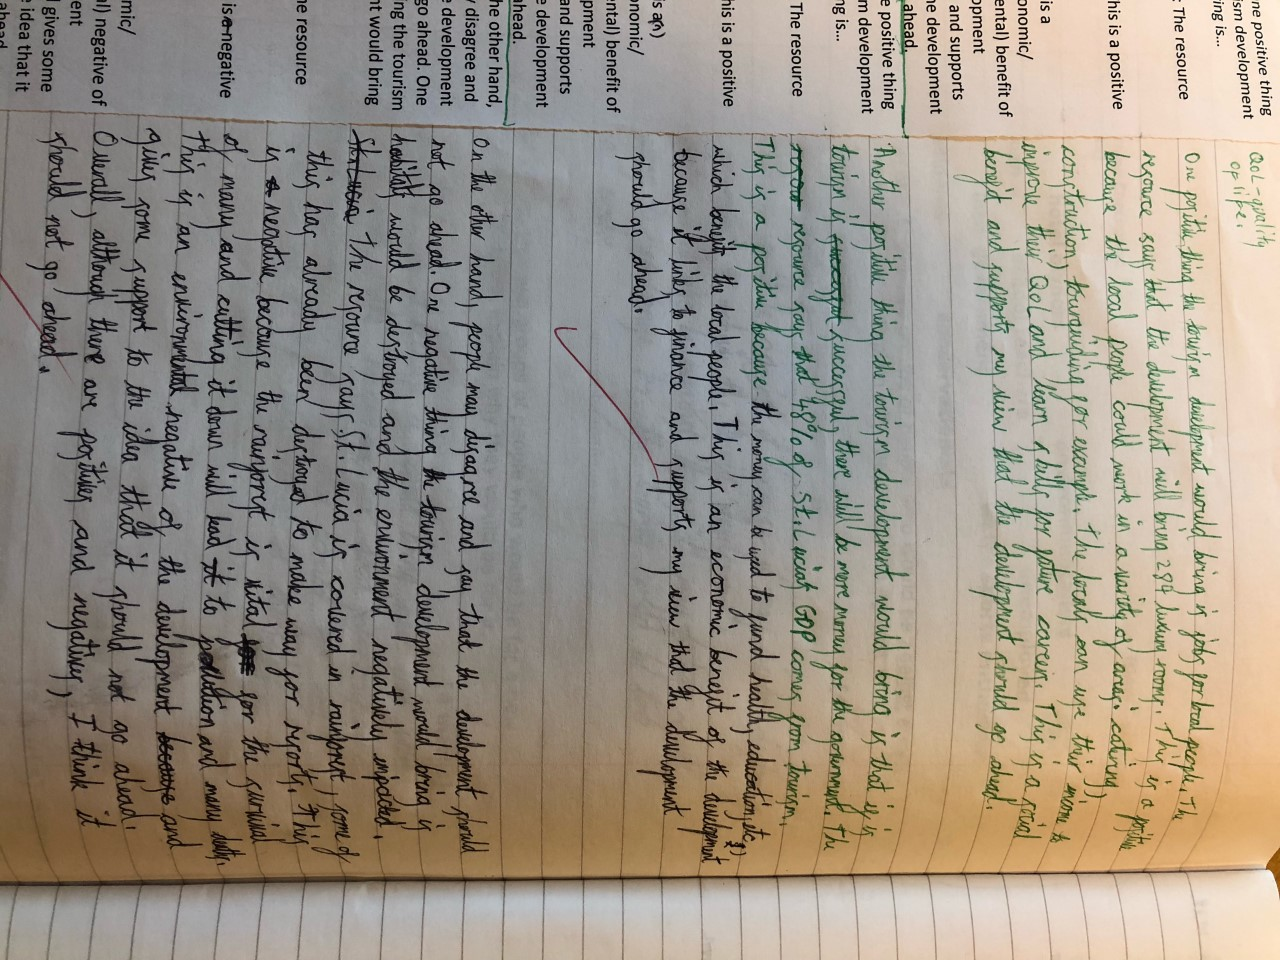 ne positive thing
ism development
ing is...
: The resource
his is a positive
is a
onomic/
ental) benefit of
opment
and supports
he development
ahead.
e positive thing
m development
ng is...
The resource
his is a positive
is a(n)
onomic/
ntal) benefit of
pment
and supports
e development
ahead.
he other hand,
y disagree and
e development
go ahead. One
ing the tourism
nt would bring
he resource
is a negative
mic/
l) negative of
ent
gives some
e idea that it
ahead
QoL - quality
of life.
One positive thing the tourism development would bring is jobs for local people. The
resource says that the development will bring 284 luxury rooms. This is a positive
because the local people could work in a variety of areas, catering,
construction, tourguiding for example. The locals can use this income to
improve their QoL and learn skills for future careers. This is a social
benefit and supports my view that the development should go ahead.
Another positive thing the tourism development would bring is that if is
tourism is successful, there will be more money for the government. The
resource says that 48% of St. Lucias GDP comes from tourism.
This is a positive because the money can be used to fund health, education, etc
which benefit the local people. This is an economic benefit of the development
because it links to finance and supports my view that the development
should go ahead.
On the other hand, people may disagree and say that the development should
not go ahead. One negative thing the tourism development would bring is
habitats would be destroyed and the environment negatively impacted.
The resource says St. Lucia is covered in rainforest, some of
this has already been destroyed to make way for resorts. This
is a negative because the rainforest is vital for the survival
of many and cutting it down will lead to pollution and many deaths.
This is an environmental negative of the development and
gives some support to the idea that it should not go ahead.
Overall, although there are positives and negatives, I think it
should not go ahead.